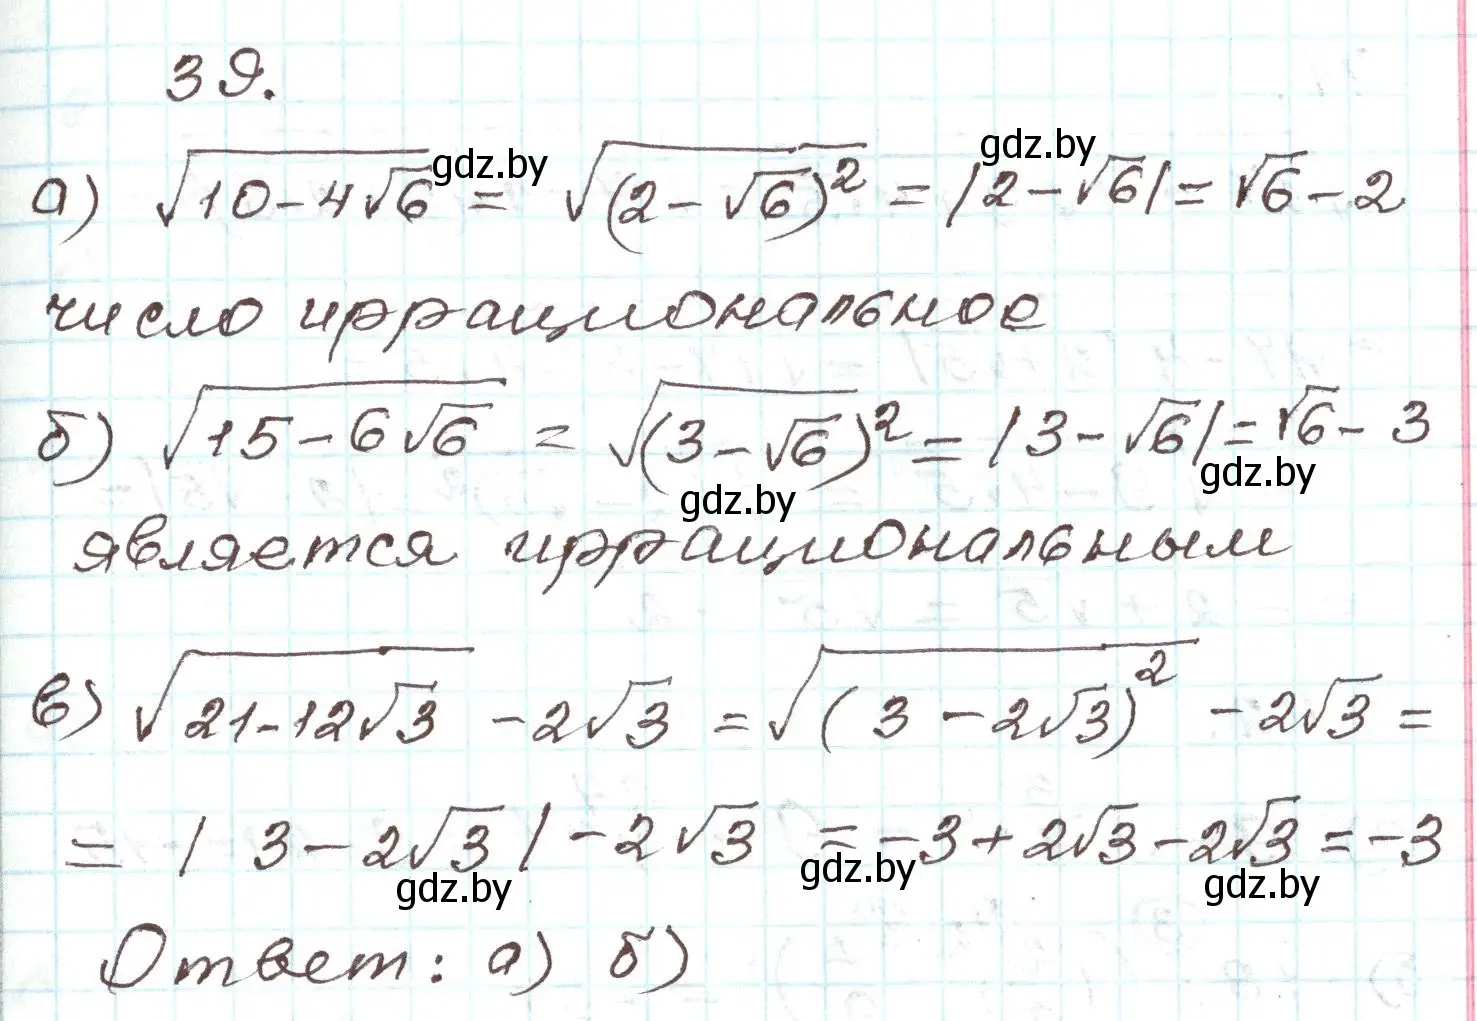 39.
а) √10-4√6 = √(2-√6)² = |2-√6| = √6-2
gdz.by
gdz.by
число иррациональное
б) √15-6√6 = √(3-√6)² = |3-√6| = √6-3
gdz.by
gdz.by
является иррациональным
в) √21-12√3 -2√3 = √(3-2√3)² -2√3 =
= |3-2√3| -2√3 = -3+2√3-2√3 = -3
gdz.by
gdz.by
gdz.by
Ответ: а) б)